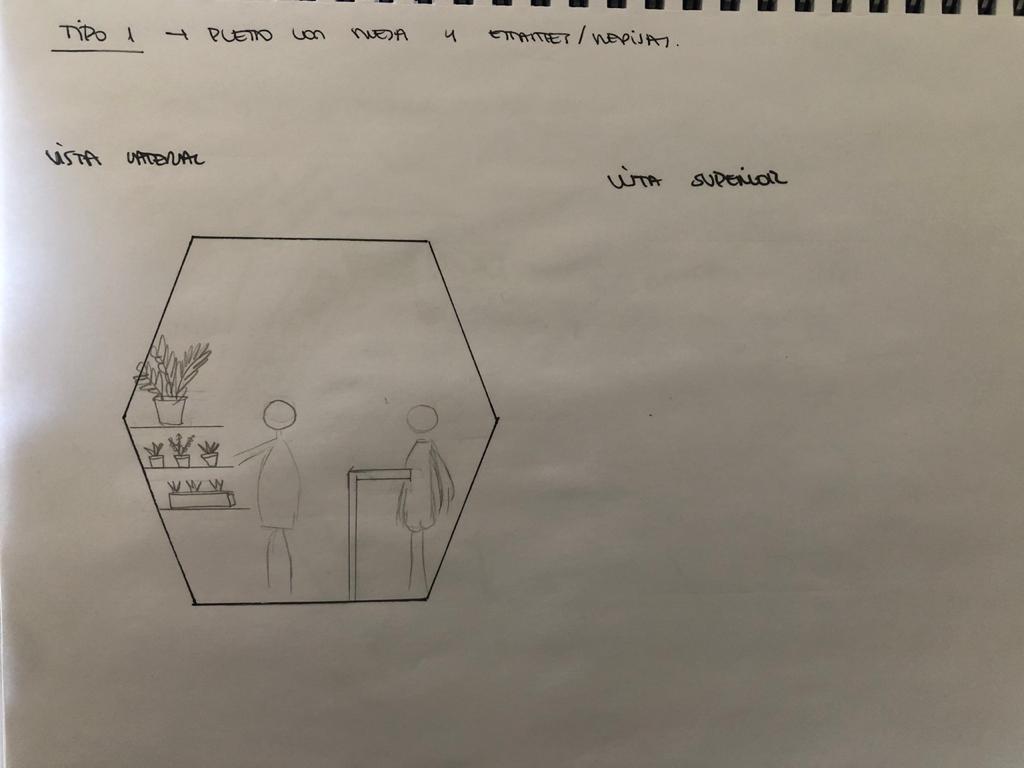 TIPO 1 → PUESTO CON MESA Y ESTANTES/REPISAS.
VISTA LATERAL
VISTA SUPERIOR